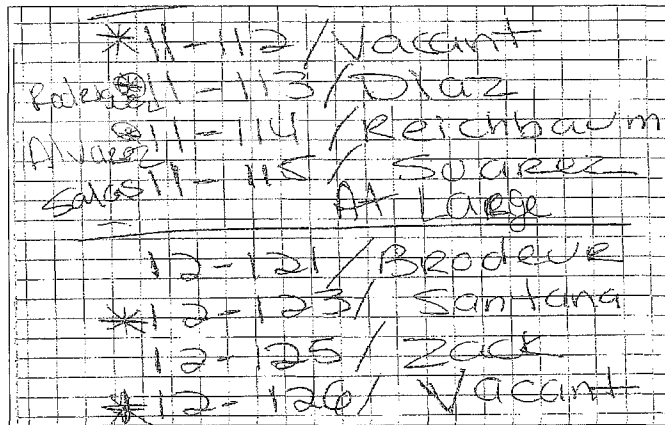 * 11-112/Vacant
Rodriguez 11-113/Diaz
Alvarez 11-114/Reichbaum
Salas 11-115/Suarez
At Large
12-121/Brodeur
* 12-123/Santana
12-125/Zack
* 12-126/Vacant